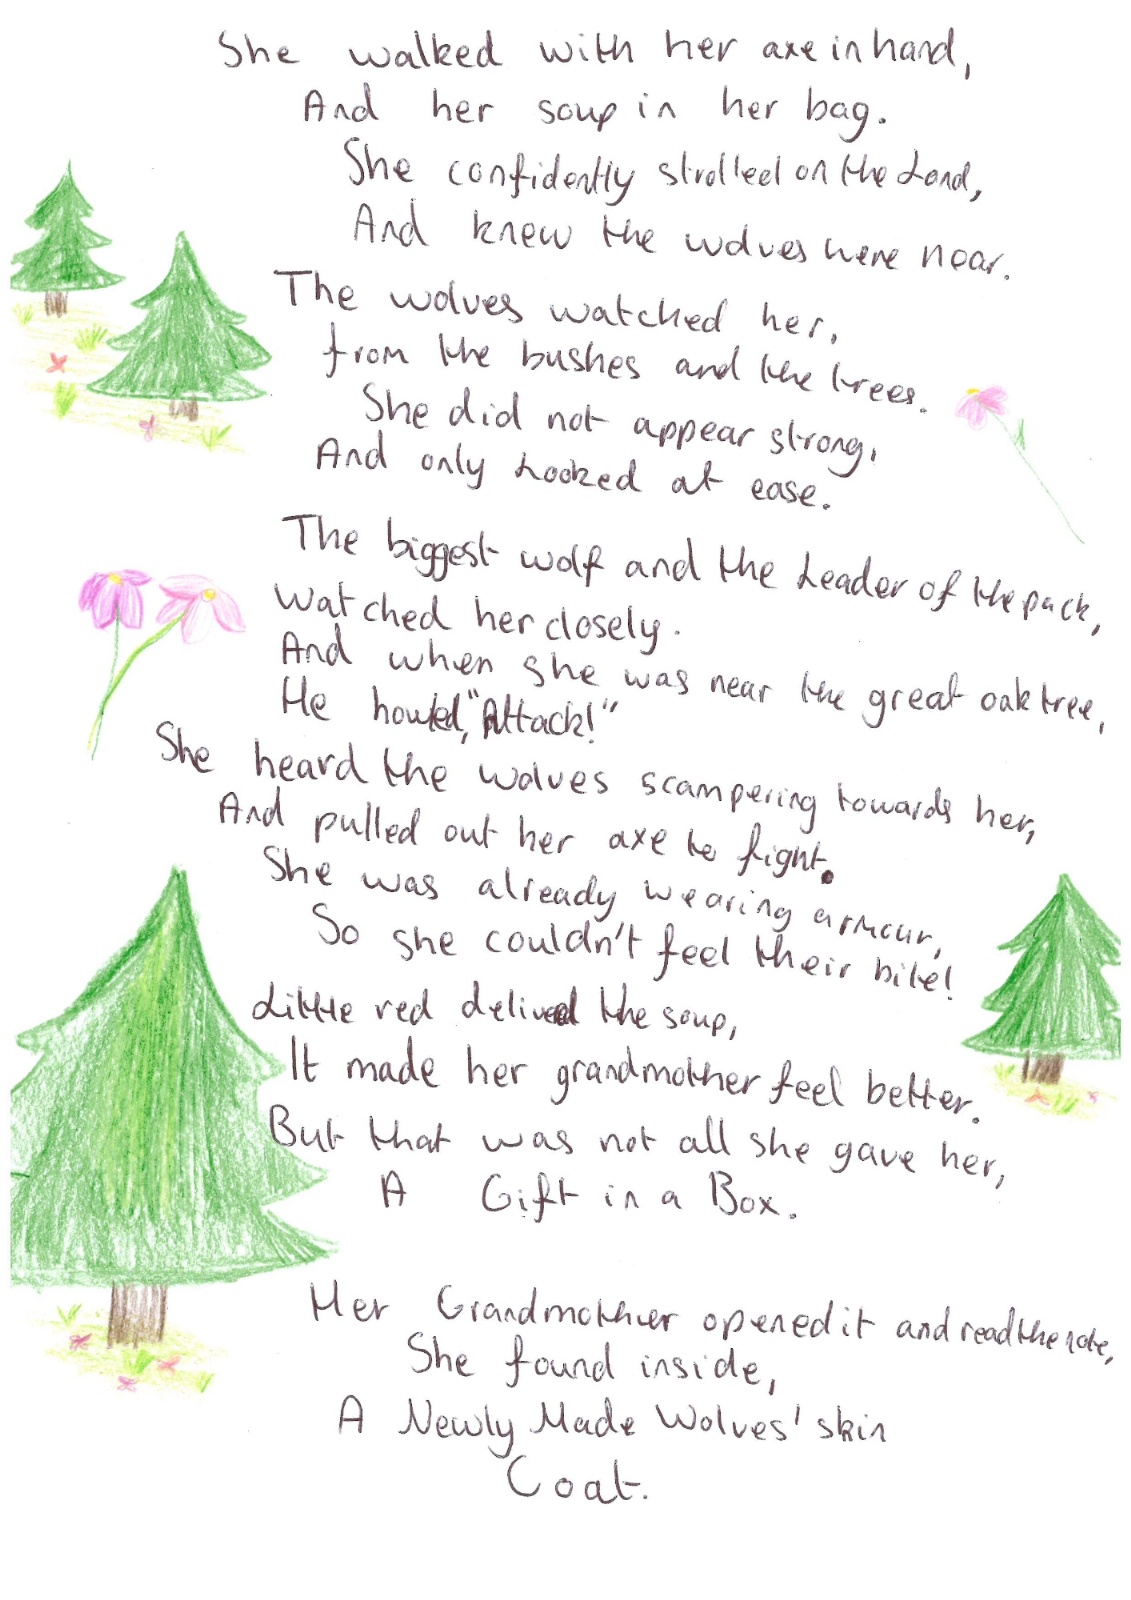 She walked with her axe in hand,
And her soup in her bag.
She confidently strolled on the Land,
And knew the wolves were near.
The wolves watched her,
from the bushes and the trees.
She did not appear strong,
And only Looked at ease.
The biggest wolf and the Leader of the pack,
watched her closely.
And when she was near the great oak tree,
He howled, "Attack!"
She heard the wolves scampering towards her,
And pulled out her axe to fight.
She was already wearing armour,
So she couldn't feel their bite!
Little red delived the soup,
It made her grandmother feel better.
But that was not all she gave her,
A Gift in a Box.
Her Grandmother opened it and read the note,
She found inside,
A Newly Made Wolves' skin
Coat.